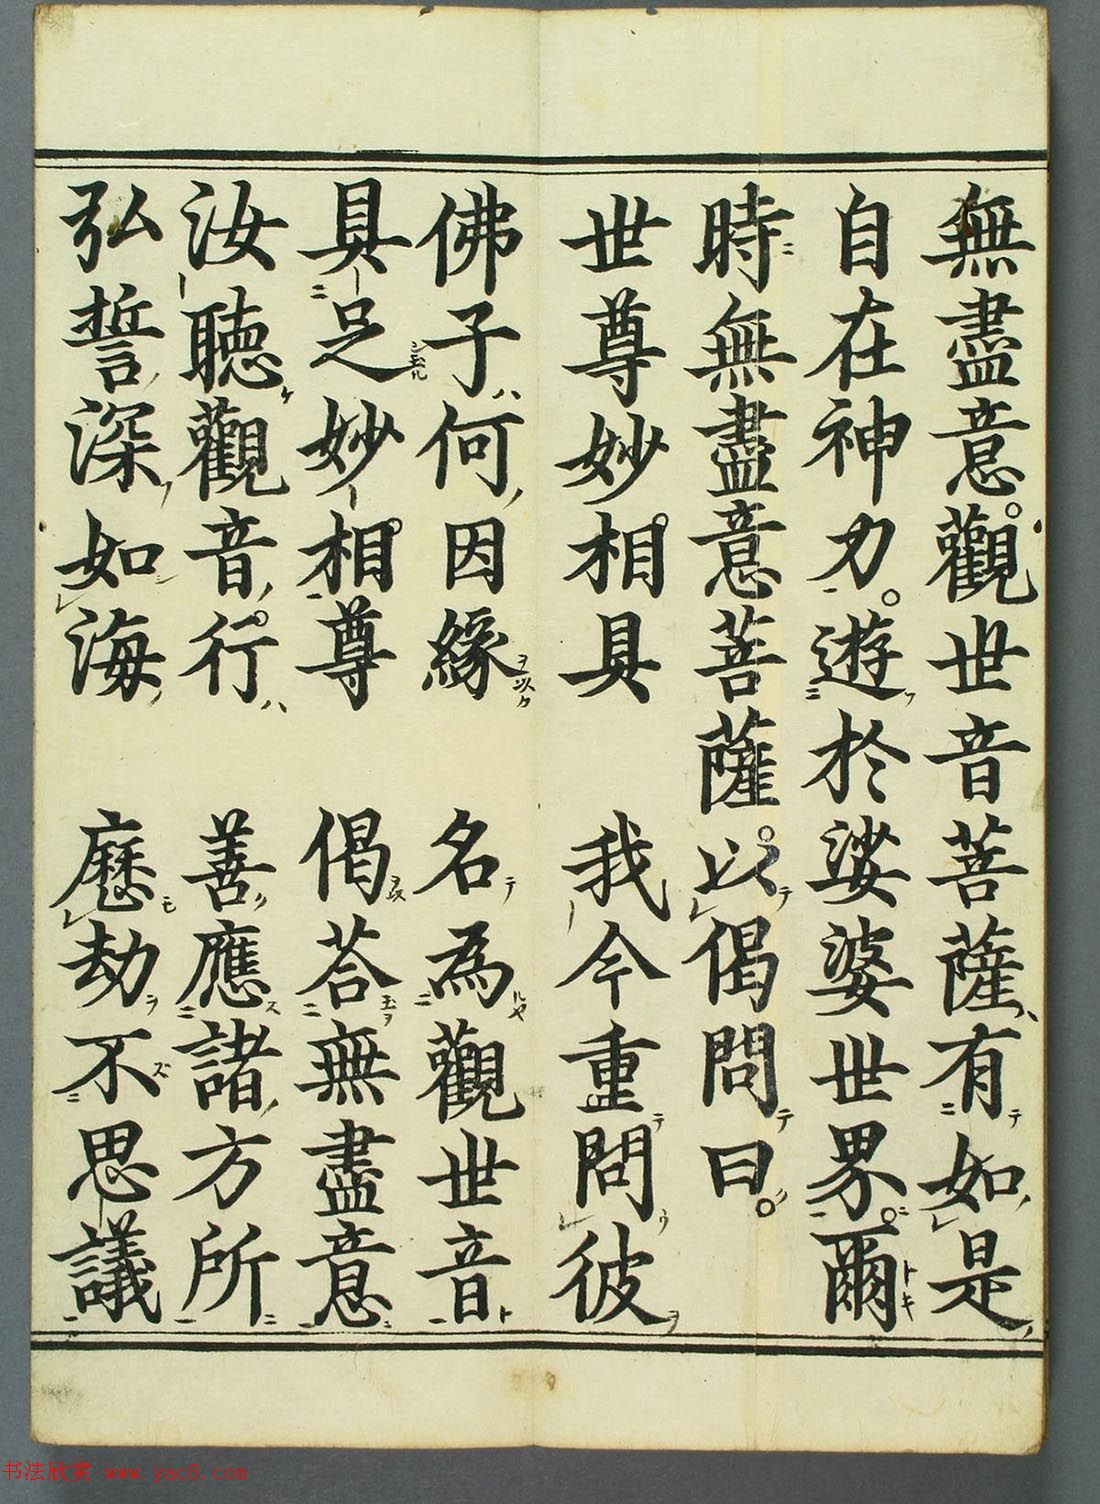 無盡意。觀世音菩薩、有如是
自在神力。遊於娑婆世界。爾
時無盡意菩薩。以偈問曰。
世尊妙相具　我今重問彼
佛子何因緣　名為觀世音
具足妙相尊　偈荅無盡意
汝聴觀音行　善應諸方所
弘誓深如海　歷劫不思議
书法欣赏 www.yac8.com